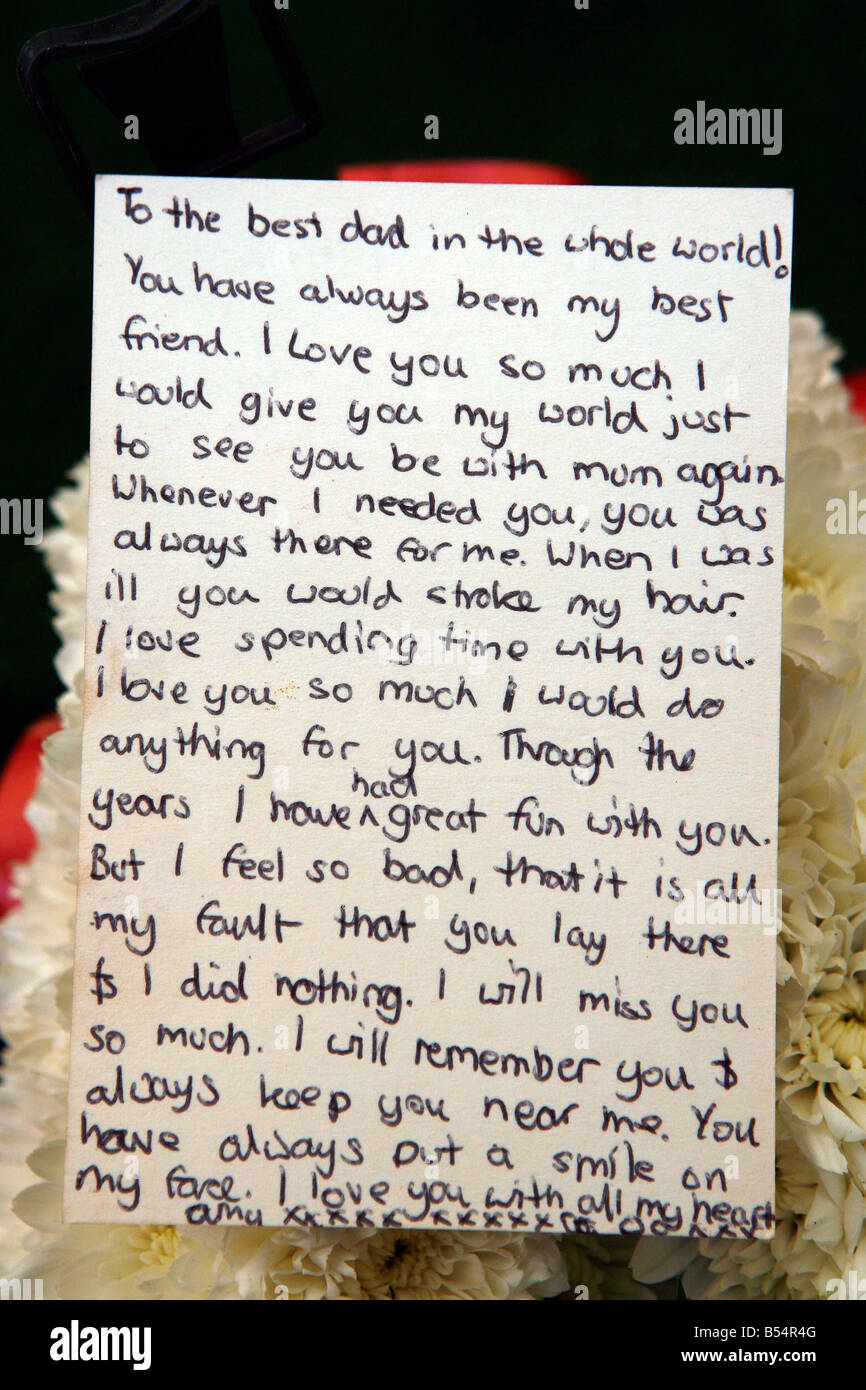 To the best dad in the whole world!
You have always been my best
friend. I Love you so much I
would give you my world just
to see you be with mum again.
Whenever I needed you, you was
always there for me. When I was
ill you would stroke my hair.
I love spending time with you.
I love you so much I would do
anything for you. Through the
had
years I have ^ great fun with you.
But I feel so bad, that it is all
my fault that you lay there
& I did nothing. I will miss you
so much. I will remember you &
always keep you near me. You
have always put a smile on
my face. I love you with all my heart
amy xxxxx xxxxxx
alamy
alamy
Image ID: B54R4G
www.alamy.com